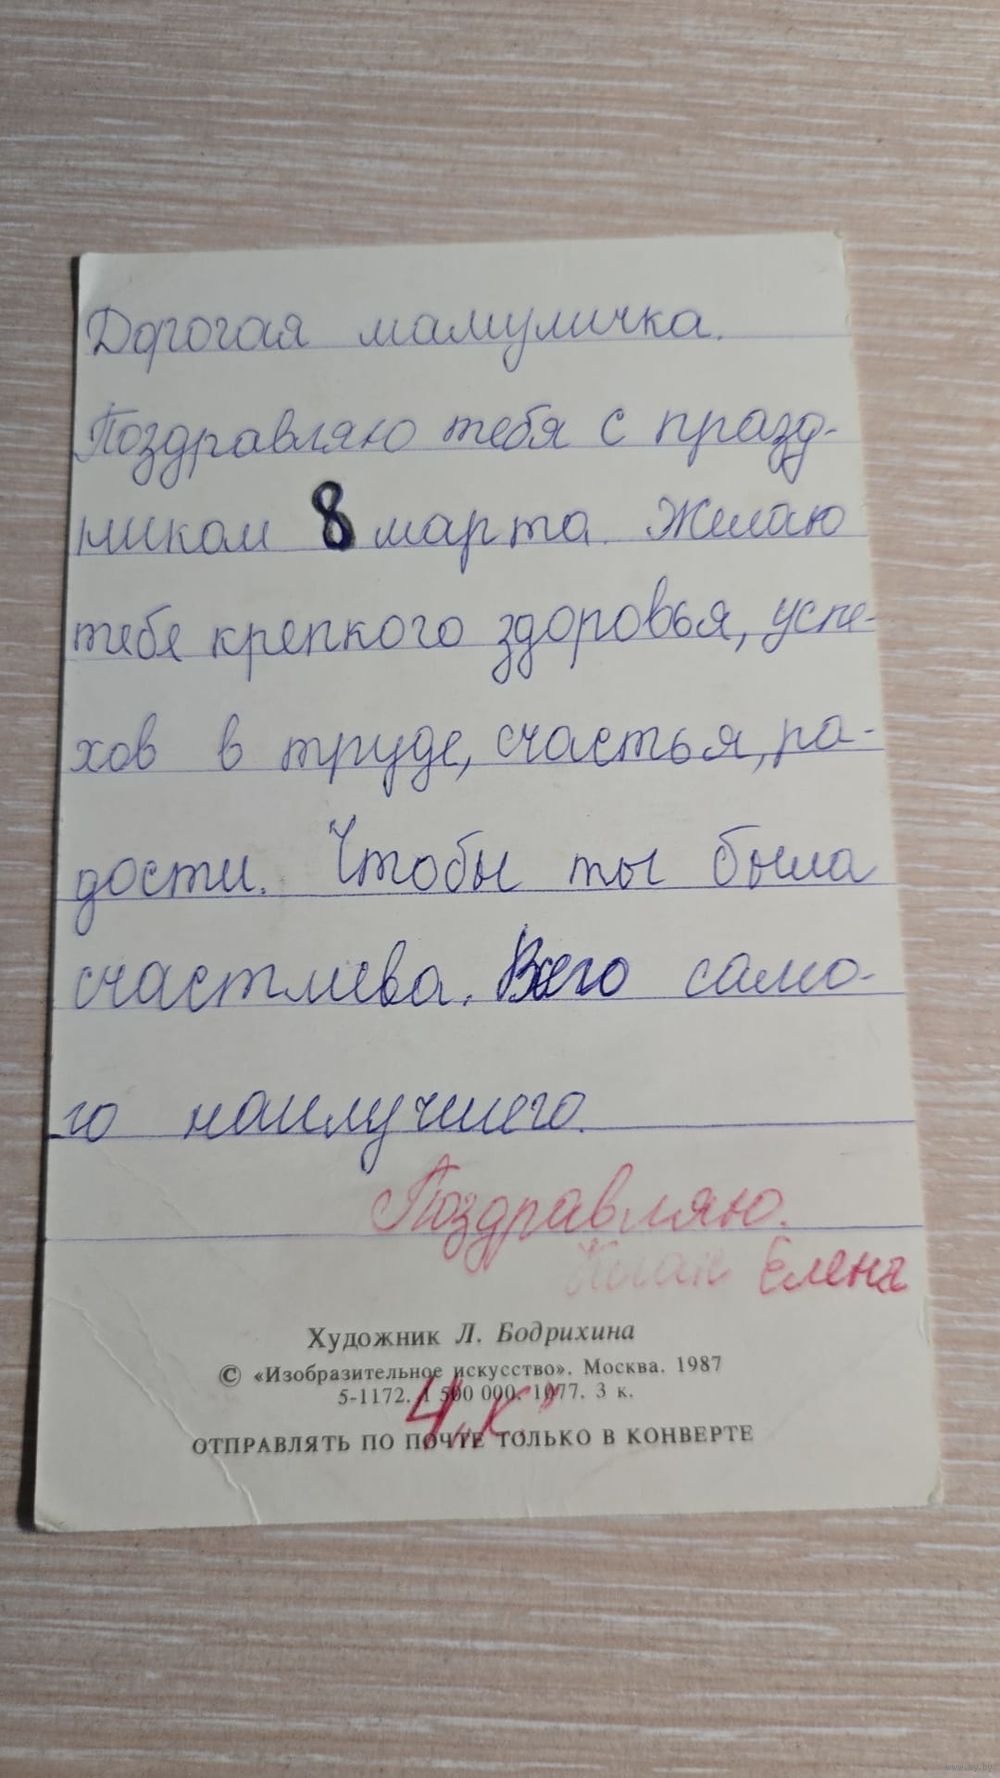 Дорогая мамуличка.
Поздравляю тебя с празд-
ником 8 марта. Желаю
тебе крепкого здоровья, успе-
хов в труде, счастья, ра-
дости. Чтобы ты была
счастлива. Всего само-
го наилучшего.
Поздравляю.
Елена
Художник Л. Бодрихина
© «Изобразительное искусство». Москва. 1987
5-1172. 1 500 000. 1077. 3 к.
4 „К"
ОТПРАВЛЯТЬ ПО ПОЧТЕ ТОЛЬКО В КОНВЕРТЕ